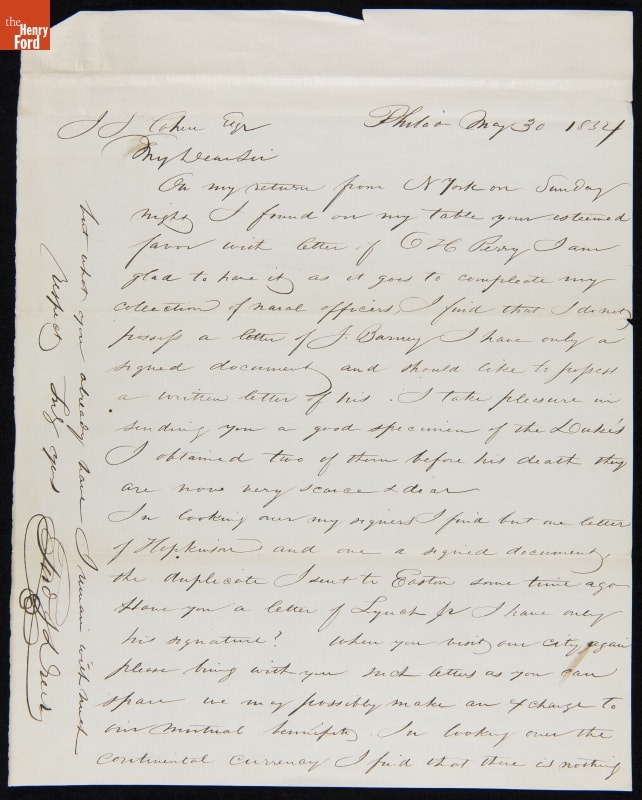 the
Henry
Ford
Philada May 30 1854
J J Cohen Esqr
My Dear Sir
On my return from N York on Sunday
night I found on my table your esteemed
favor with letter of O H Perry I am
glad to have it as it goes to compleate my
colection of naval officers, I find that I do not
possess a letter of J. Barney I have only a
signed document and should like to possess
a written letter of his. I take pleasure in
sending you a good specimen of the Duke's
I obtained two of them before his death they
are now very scarce & dear
In looking over my signers I find but one letter
of Hopkinson and one a signed document,
the duplicate I sent to Easton some time ago
Have you a letter of Lynch Jr I have only
his signature? When you visit our city again
please bring with you such letters as you can
spare we may possibly make an exchange to
our mutual bennifit. In looking over the
continental currency I find that there is nothing
but what you already have I remain with much
respect Truly yours